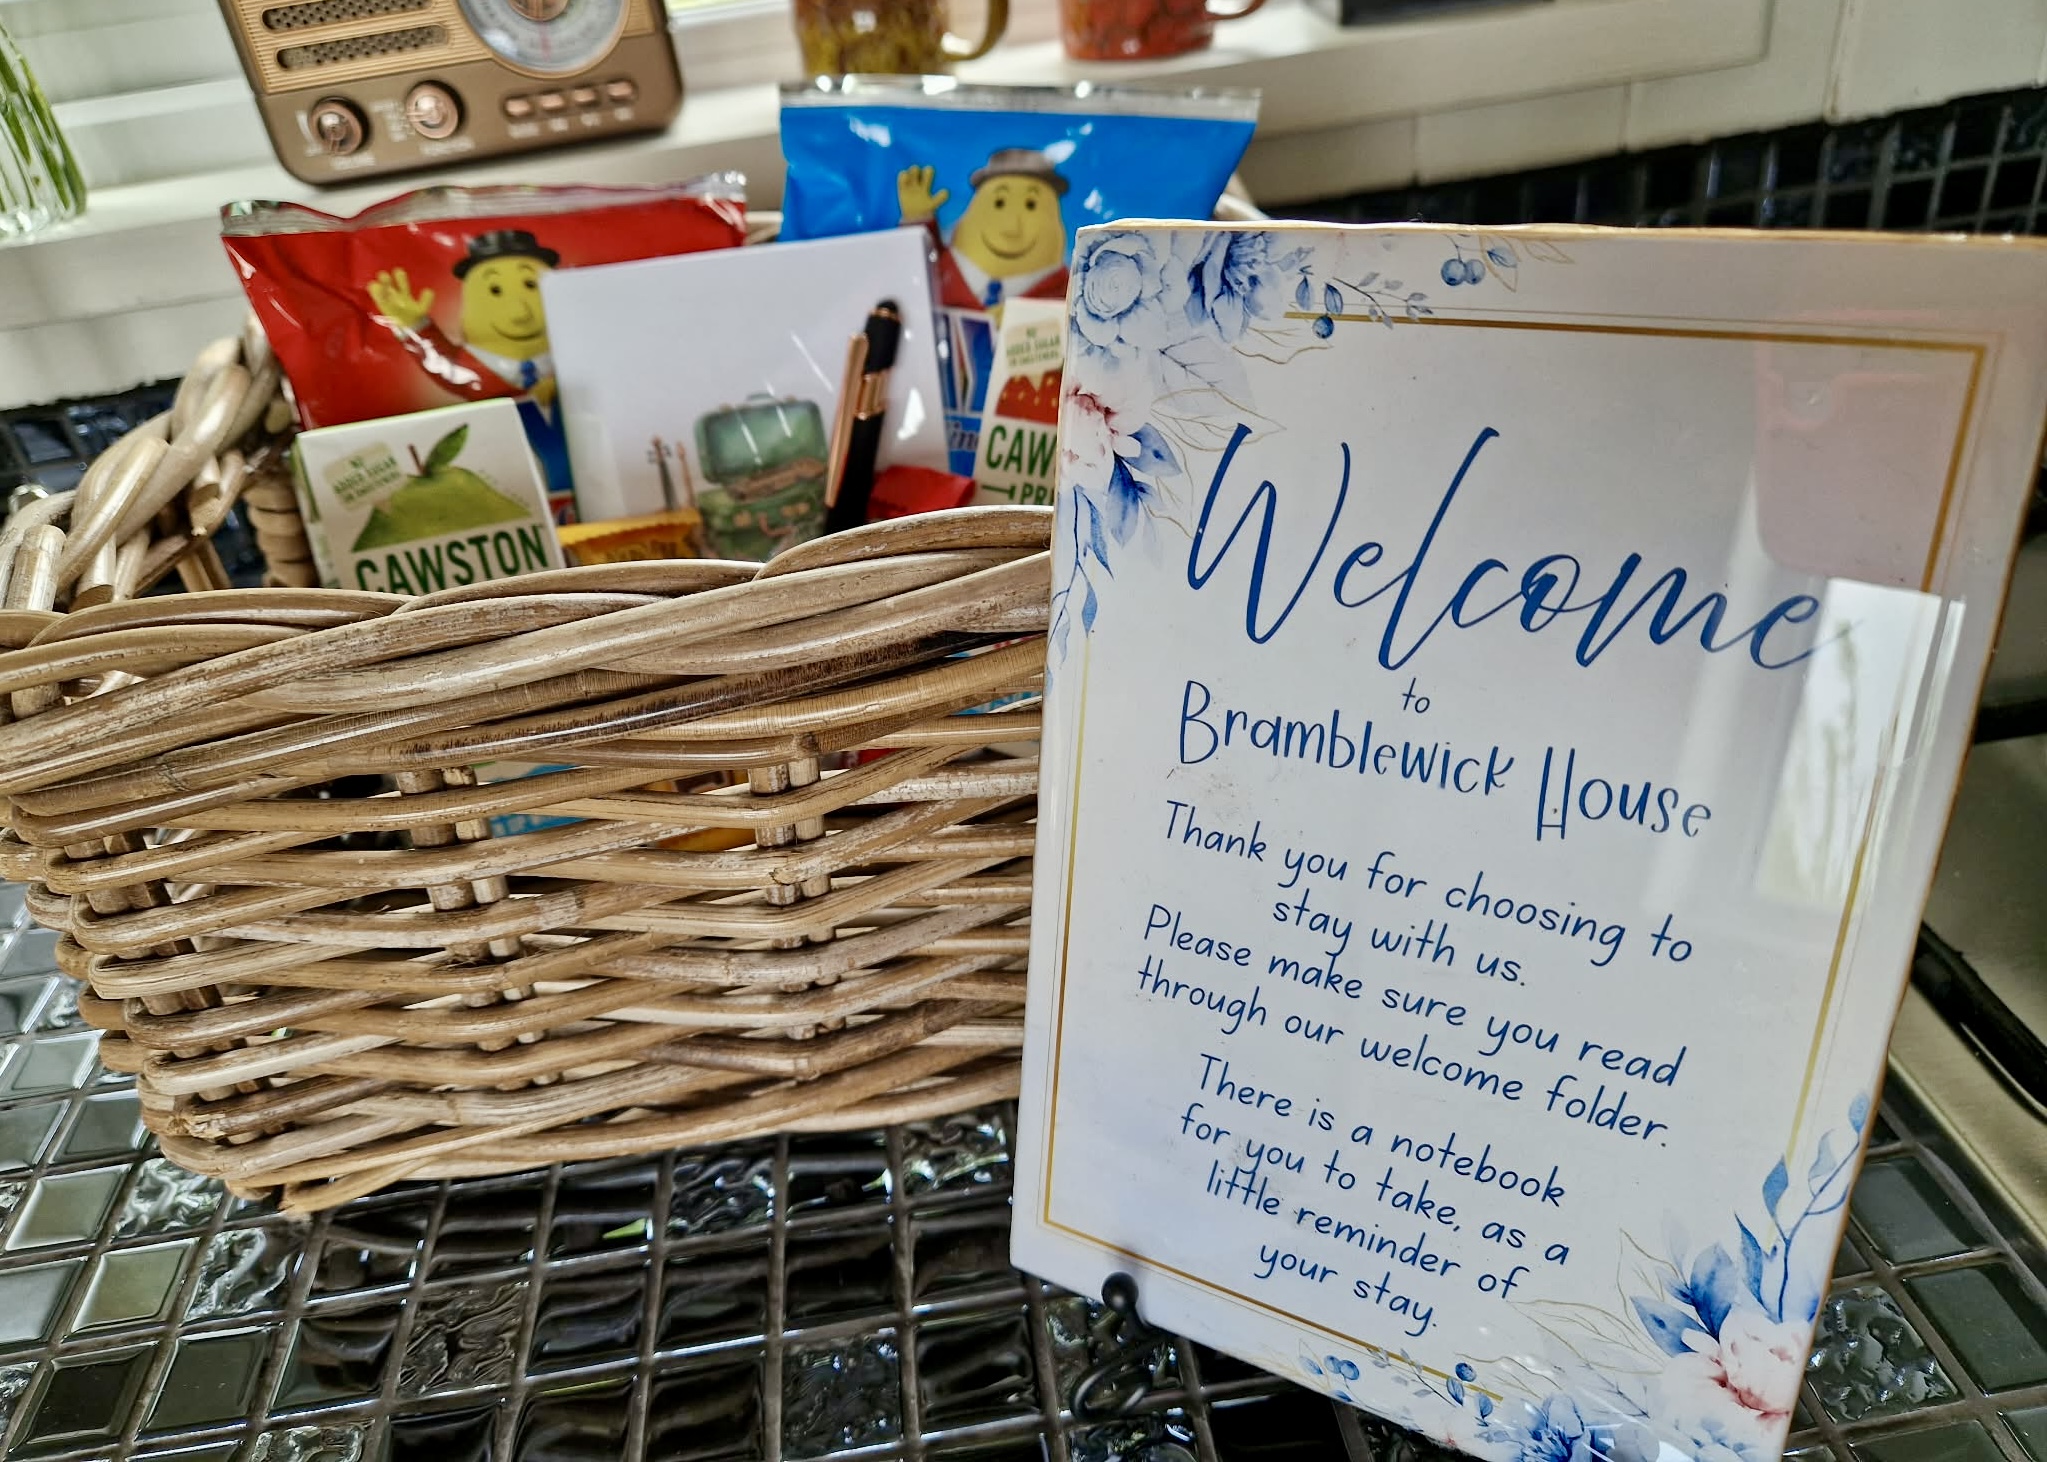 NO
ADDED SUGAR
OR SWEETENERS
CAWSTON
NO
ADDED SUGAR
OR SWEETENERS
CAW
PR
Welcome
to
Bramblewick House
Thank you for choosing to
stay with us.
Please make sure you read
through our welcome folder.
There is a notebook
for you to take, as a
little reminder of
your stay.